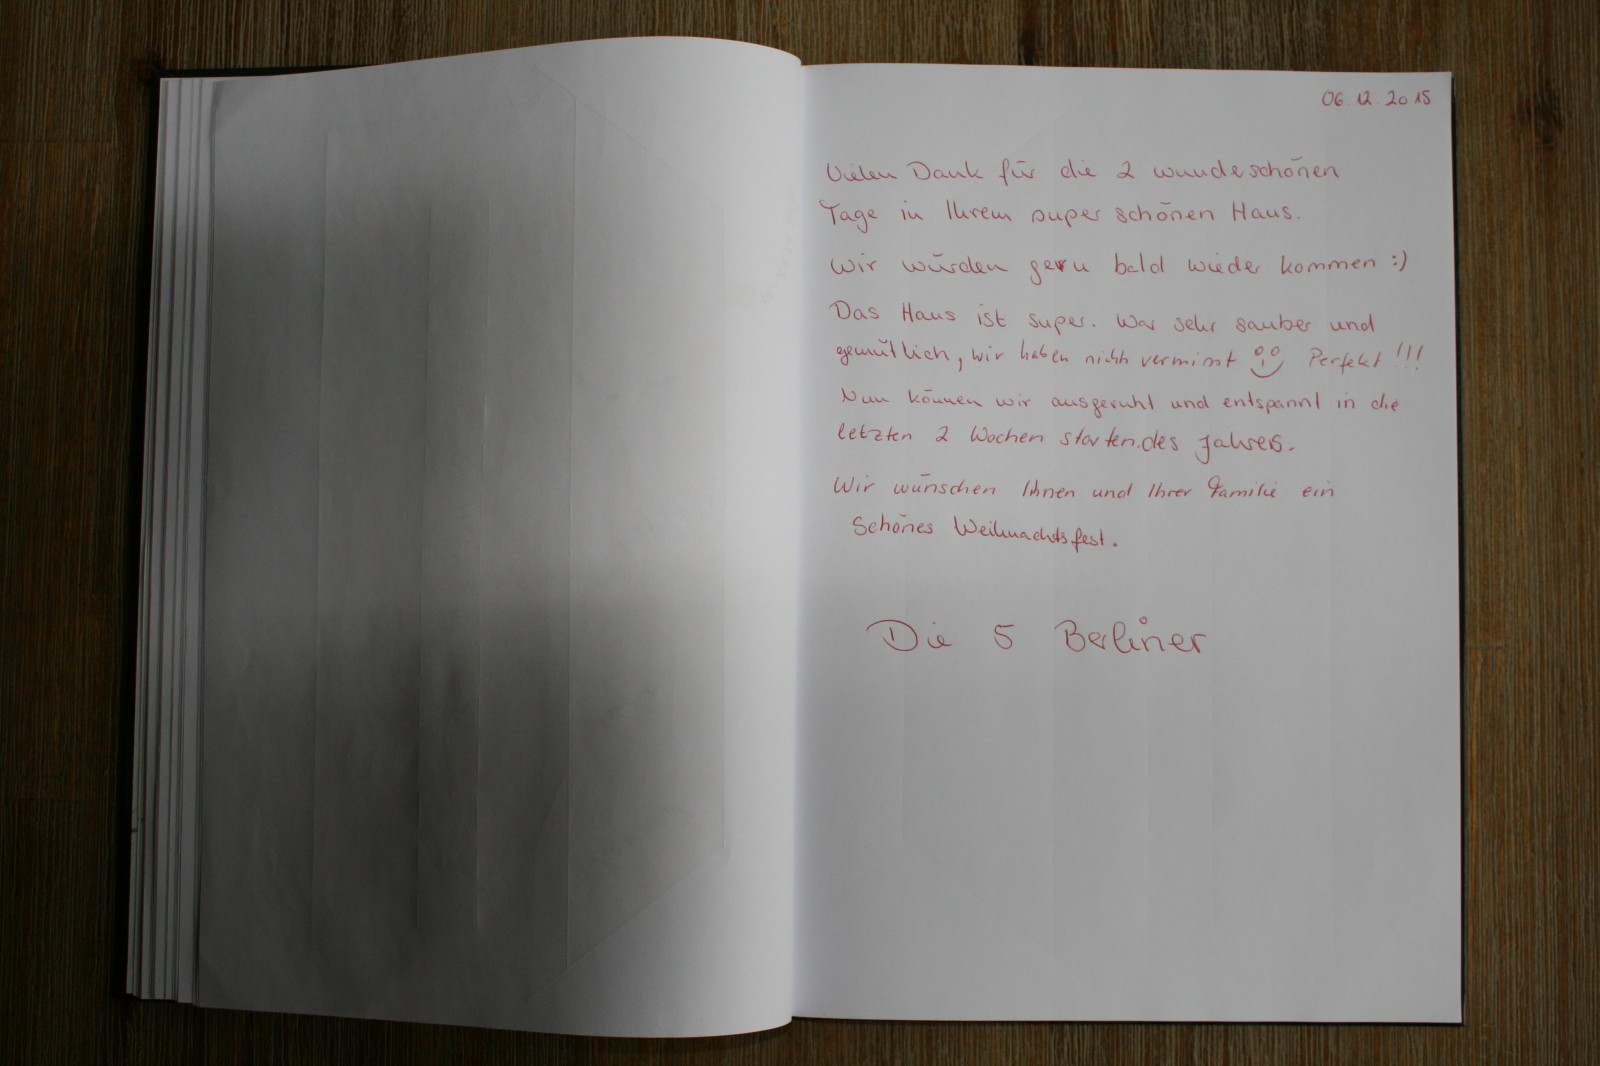 06.12.2015
Vielen Dank für die 2 wundeschönen
Tage in Ihrem super schönen Haus.
Wir würden gern bald wieder kommen :)
Das Haus ist super. War sehr sauber und
gemütlich, wir haben nichts vermisst Perfekt!!!
Nun können wir ausgeruht und entspannt in die
letzten 2 Wochen starten.des Jahres.
Wir wünschen Ihnen und Ihrer Familie ein
Schönes Weihnachtsfest.
Die 5 Berliner